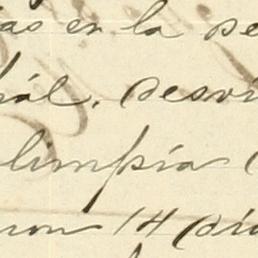 as en la se
ál. desvi
limpia
ron 14 dia